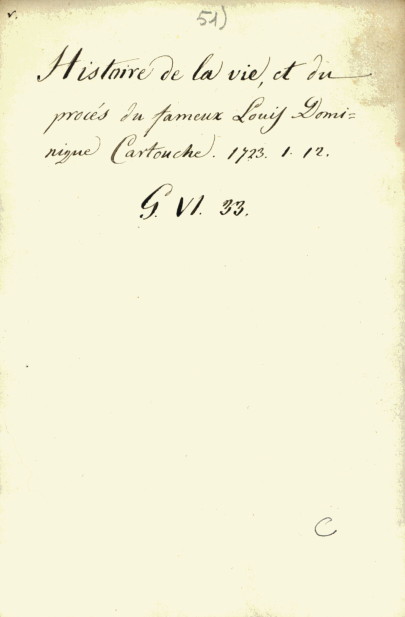 51)
Histoire de la vie, et du
procés du fameux Louis Domi=
nique Cartouche. 1723. 1. 12.
G. VI. 33.
C